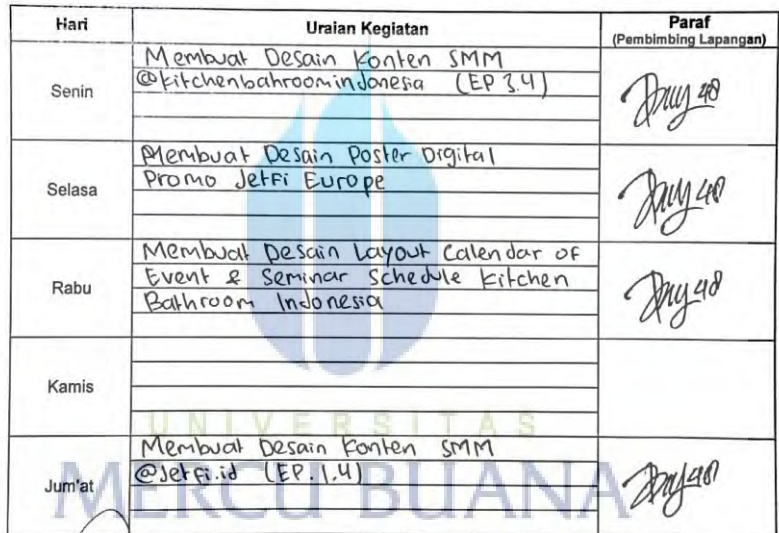 Hari Uraian Kegiatan Paraf
(Pembimbing Lapangan)
Senin
Membuat Desain Konten SMM
@kitchenbahroomindonesia (EP 3.4)
Selasa
Membuat Desain Poster Digital
Promo JetFi Europe
Rabu
Membuat Desain Layout Calendar of
Event & Seminar Schedule Kitchen
Bathroom Indonesia
Kamis
UNIVERSITAS
MERCU BUANA
Jum'at
Membuat Desain Konten SMM
@Jetfi.id (EP.1.4)